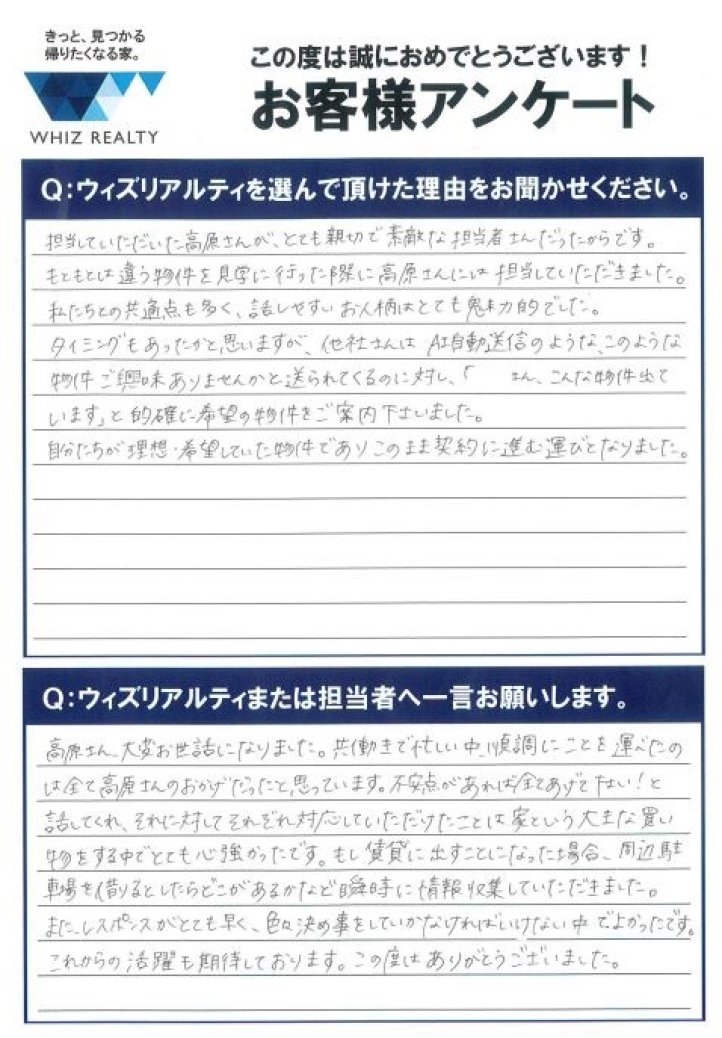 きっと、見つかる
帰りたくなる家。
WHIZ REALTY
この度は誠におめでとうございます！
お客様アンケート
Q：ウィズリアルティを選んで頂けた理由をお聞かせください。
担当していただいた高原さんが、とても親切で素敵な担当者さんだったからです。
もともとは違う物件を見学に行った際に高原さんには担当していただきました。
私たちとの共通点も多く、話しやすいお人柄はとても魅力的でした。
タイミングもあったかと思いますが、他社さんは AI自動送信のような、このような
物件ご興味ありませんかと送られてくるのに対し、「 さん、こんな物件出て
います」と的確に希望の物件をご案内下さいました。
自分たちが理想・希望していた物件でありこのまま契約に進む運びとなりました。
Q：ウィズリアルティまたは担当者へ一言お願いします。
高原さん、大変お世話になりました。共働きで忙しい中、順調にことを運べたの
は全て高原さんのおかげだったと思っています。不安点があれば全てあげて下さい！と
話してくれ、それに対してそれぞれ対応していただけたことは家という大きな買い
物をする中でとても心強かったです。もし賃貸に出すことになった場合、周辺駐
車場を借りるとしたらどこがあるかなど瞬時に情報収集していただきました。
また、レスポンスがとても早く、色々決め事をしていかなければいけない中で良かったです。
これからの活躍も期待しております。この度はありがとうございました。